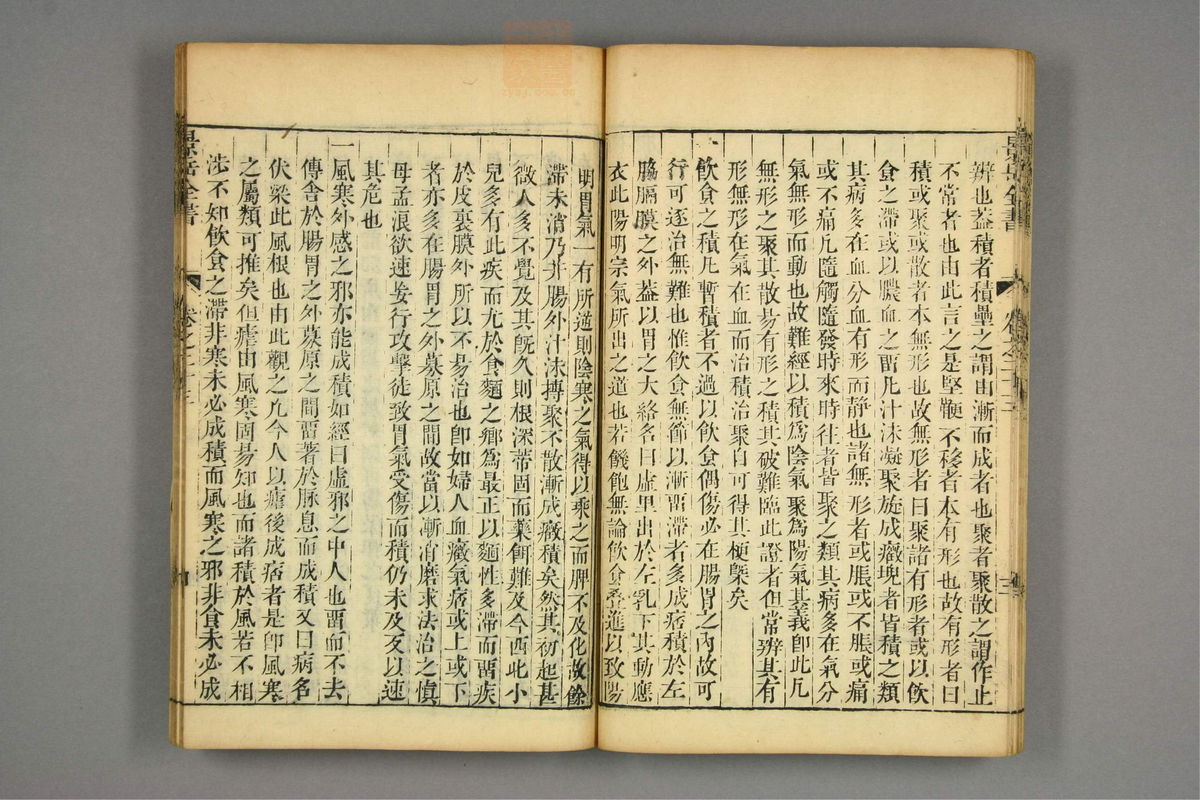 辨也葢積者積壘之謂由漸而成者也聚者聚散之謂作止
不常者也由此言之是堅鞭不移者本有形也故有形者曰
積或聚或散者本無形也故無形者曰聚諸有形者或以飲
食之滯或以膿血之畱凡汁沫凝聚旋成癥塊者皆積之類
其病多在血分血有形而静也諸無形者或脹或不脹或痛
或不痛凡隨觸隨發時來時往者皆聚之類其病多在氣分
氣無形而動也故難經以積爲陰氣聚爲陽氣其義卽此凡
無形之聚其散易有形之積其破難臨此證者但當辨其有
形無形在氣在血而治積治聚自可得其梗槩矣
飲食之積凡暫積者不過以飲食偶傷必在腸胃之內故可
行可逐治無難也惟飲食無節以漸畱滯者多成痞積於左
脇膈膜之外葢以胃之大絡名曰虚里出於左乳下其動應
衣此陽明宗氣所出之道也若饑飽無論飲食叠進以致陽
景岳全書
卷之二十三
明胃氣一有所逆則陰寒之氣得以乘之而脾不及化故餘
滯未消乃并腸外汁沫搏聚不散漸成癥積矣然其初起甚
微人多不覺及其旣久則根深蒂固而藥餌難及今西北小
兒多有此疾而尤於食麵之鄉爲最正以麵性多滯而畱疾
於皮裏膜外所以不易治也卽如婦人血癥氣痞或上或下
者亦多在腸胃之外募原之間故當以漸消磨求法治之愼
毋孟浪欲速妄行攻擊徒致胃氣受傷而積仍未及反以速
其危也
一風寒外感之邪亦能成積如經曰虚邪之中人也畱而不去
傳舍於腸胃之外募原之間畱著於脉息而成積又曰病名
伏梁此風根也由此觀之凡今人以瘧後成病者是卽風寒
之屬類可推矣但瘧由風寒固易知也而諸積於風若不相
涉不知飲食之滯非寒未必成積而風寒之邪非食未必成
景岳全書
卷之二十三